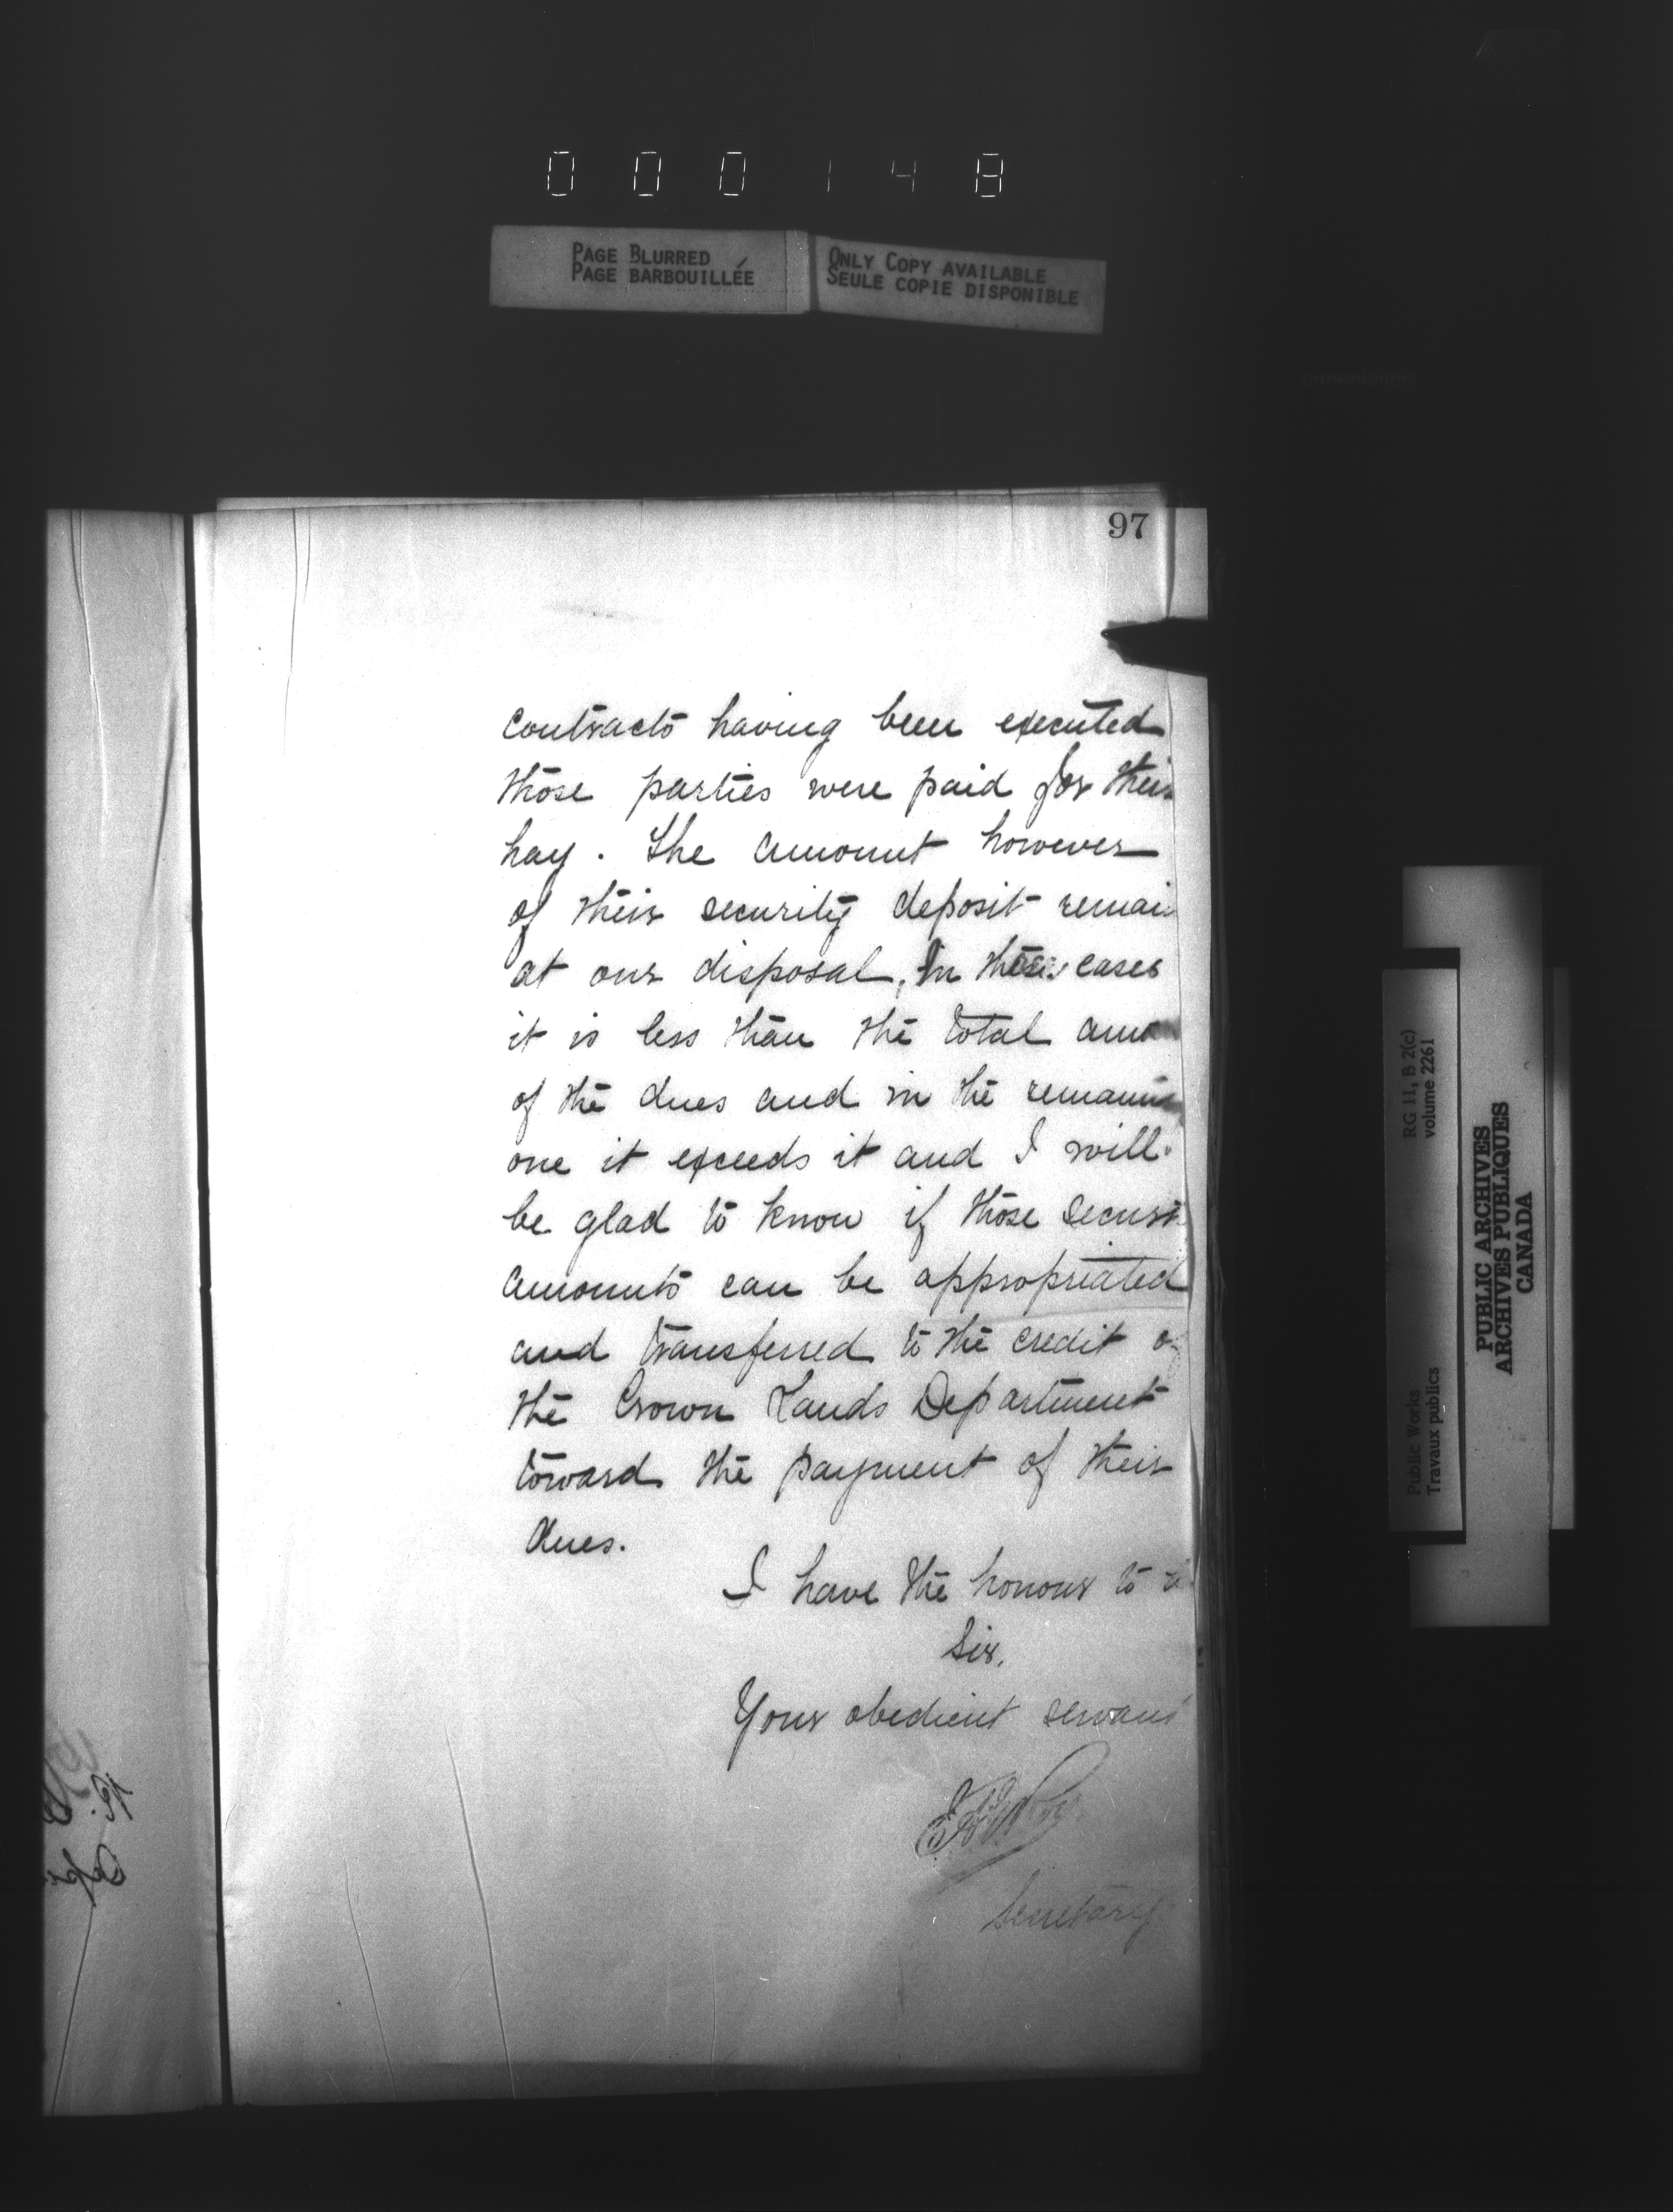 0 0 0 1 4 8
PAGE BLURRED
PAGE BARBOUILLÉE
ONLY COPY AVAILABLE
SEULE COPIE DISPONIBLE
97
contracts having been executed
those parties were paid for their
hay. The amount however
of their security deposit remai
at our disposal, In these cases
it is less than the total amo
of the dues and in the remainin
one it exceeds it and I will
be glad to know if those securit
amounts can be appropriated
and transferred to the credit o
the Crown Lands Department
toward the payment of their
dues.
I have the honour to
Sir,
Your obedient servant
Secretary
RG 11, B 2(c)
volume 2261
Public Works
Travaux publics
PUBLIC ARCHIVES
ARCHIVES PUBLIQUES
CANADA